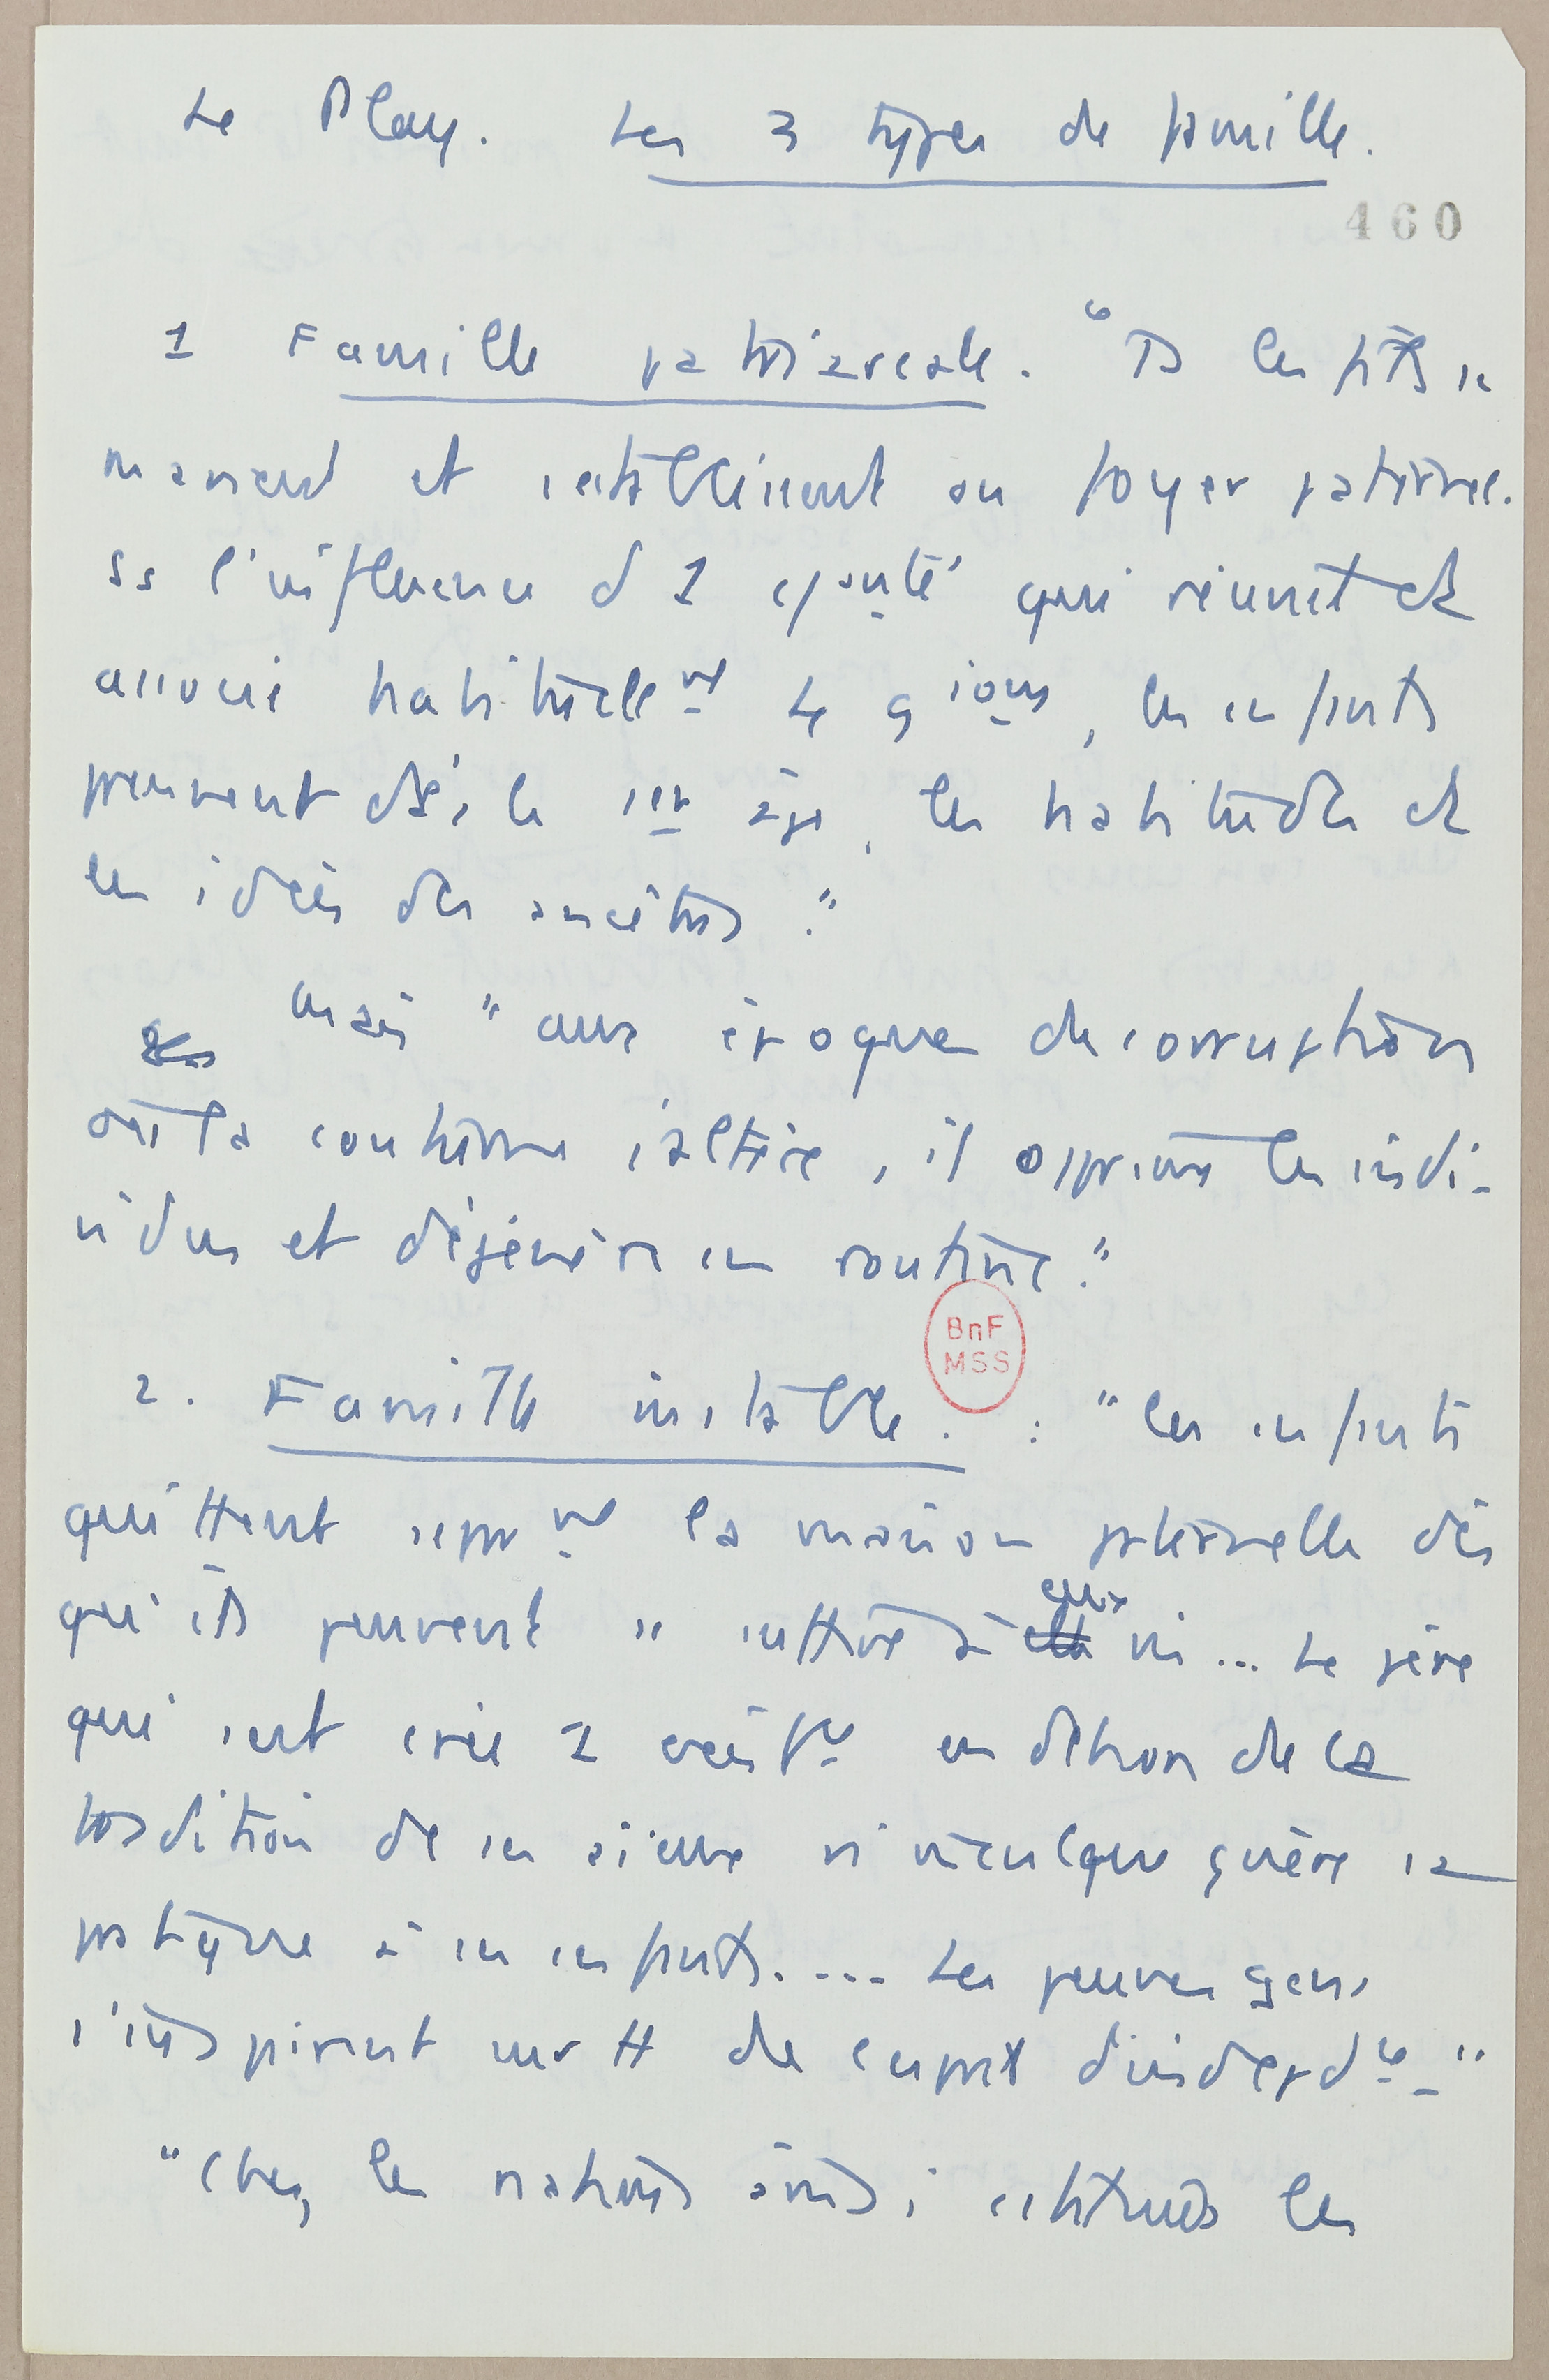 Le Play. Les 3 types de famille.
460
1 Famille patriarcale. "Ts les fils se
marient et s'établissent au foyer paternel.
ss l'influence d 1 cpauté qui réunit et
associe habituellemt 4 gions, les enfants
peuvent dès le 1er âge, les habitudes et
les idées des ancêtres."
Mais "aux époques de corruption
où la coutume s'altère, il opprime les indi-
vidus et dégénère en routine."
BnF
MSS
2. Famille instable. : "les enfants
quittent sepmt la maison paternelle dès
qu'ils peuvent se suffire à eux ms... Le père
qui s'est créé 1 existce en dehors de la
tradition de ses aïeux n'inculque guère sa
pratique à ses enfants.... Les jeunes gens
s'inspirent sur tt de l'esprit d'indepdce"
"Chez les nations ainsi constitués les